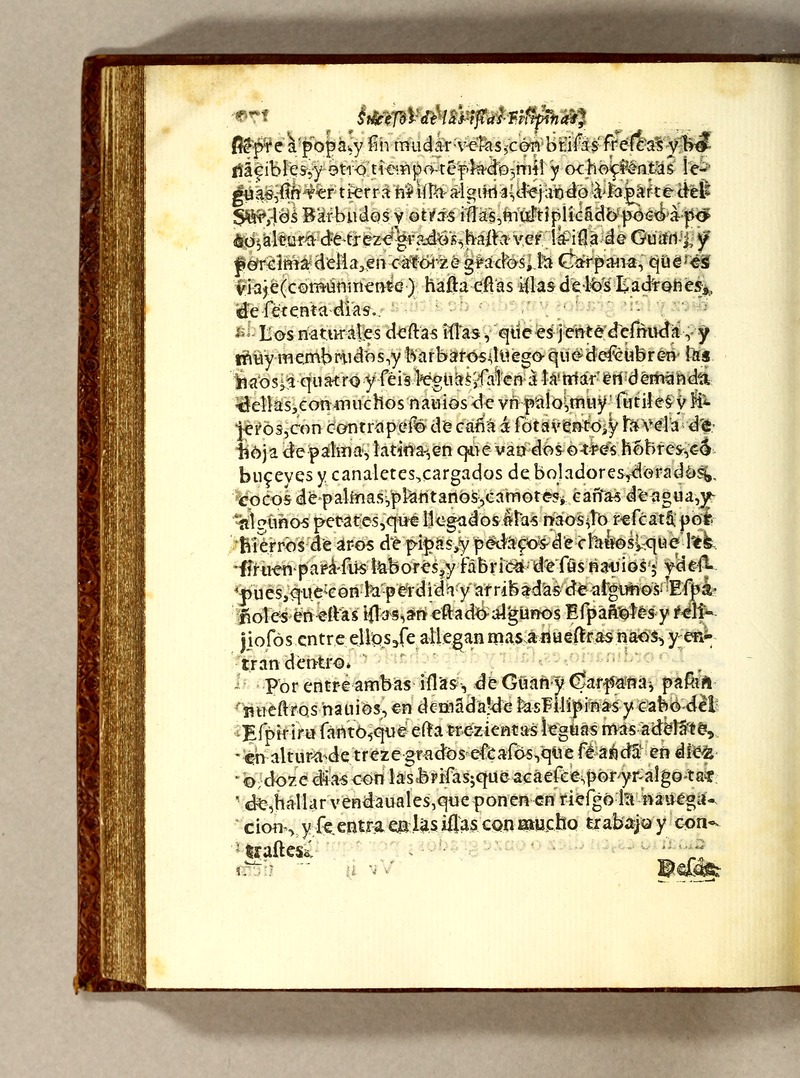 Sucesos de las islas Filipinas,
siēpre à popa, y sin mudar velas, con brisas frescas y bo
nāçibles, y otro tiempo tēplado, mil y ochoçientas le-
guas, sin ver tierra ni isla alguna, dejando à la parte del
Sur, los Barbudos y otras islas, multiplicādo poco à po
co, altura de treze grados, hasta ver la isla de Guan; y
por cima della, en catorze grados, la Carpana, que es
viaje (comunmente) hasta estas islas de los Ladrones,
de setenta dias.
Los naturales destas islas, que es jente desnuda, y
muy membrudos, y barbaros, luego que descubren las
naos, a quatro y seis leguas, salen à la mar en demanda
dellas, con muchos nauios de vn palo, muy sutiles y li-
jeros, con contrapeso de caña á sotavento, y la vela de
hoja de palma, latina, en que van dos o tres hōbres, cō
buçeyes y canaletes, cargados de boladores, dorados,
cocos de palmas, plantanos, camotes, cañas de agua, y
algunos petates, que llegados á las naos, lo rescatā por
hierros de aros de pipas, y pedaços de clauos, que les
siruen para sus labores, y fabrica de sus nauios; y des-
pues, que con la perdida y arribadas de algunos Espa-
ñoles en estas islas, an estado algunos Españoles y reli-
jiosos entre ellos, se allegan mas a nuestras naos, y en-
tran dentro.
Por entre ambas islas, de Guan y Carpana, pasan
nuestros nauios, en demāda de las Filipinas y cabo del
Espiritu santo, que esta trezientas leguas mas adelāte,
en altura de treze grados escasos, que se andā en diez
o doze dias con las brisas, que acaesce, por yr algo tar
de, hallar vendauales, que ponen en riesgo la nauega-
cion, y se entra en las islas con mucho trabajo y con-
trastes.
Desde